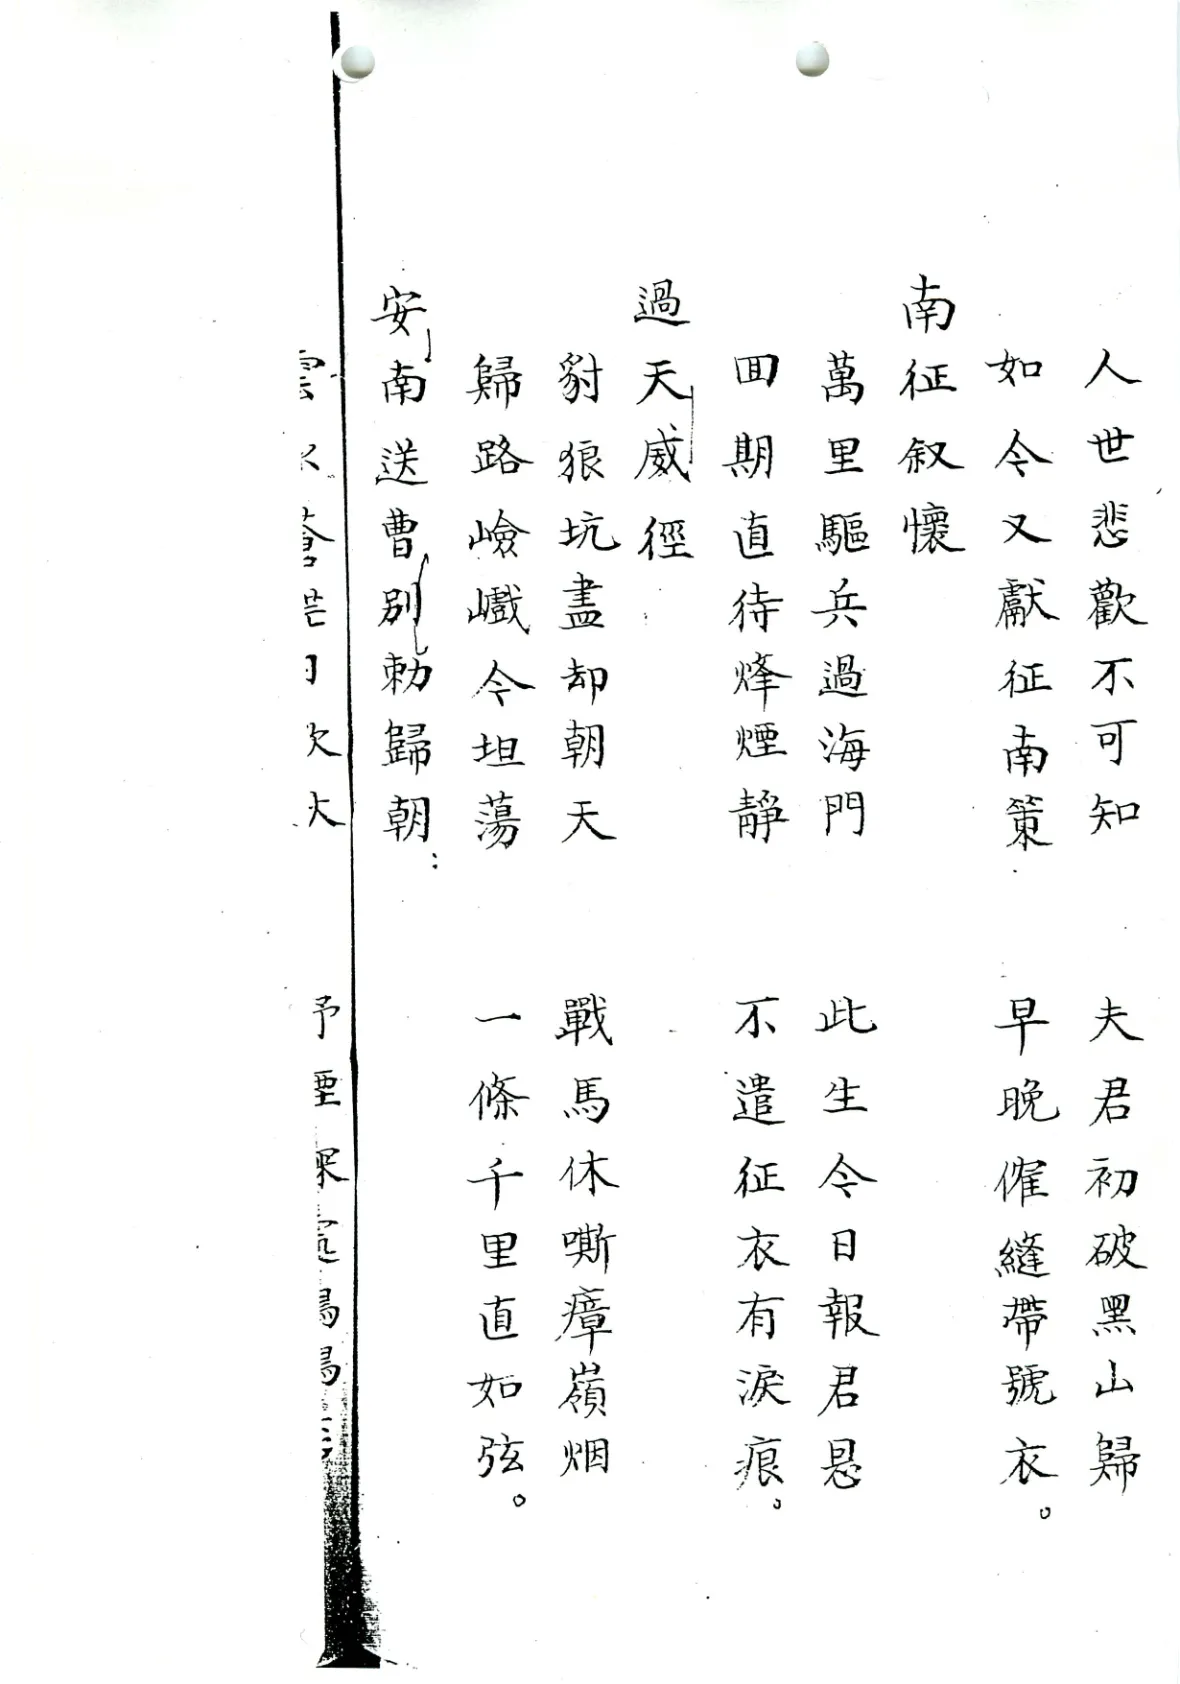 人世悲歡不可知 夫君初破黑山歸
如今又獻征南策 早晚催縫帶號衣。
南征叙懷
萬里驅兵過海門 此生今日報君恩
回期直待烽煙靜 不遣征衣有淚痕。
過天威徑
豺狼坑盡却朝天 戰馬休嘶瘴嶺烟
歸路嶮巇今坦蕩 一條千里直如弦。
安南送曹別勑歸朝
雲水蒼茫日欲